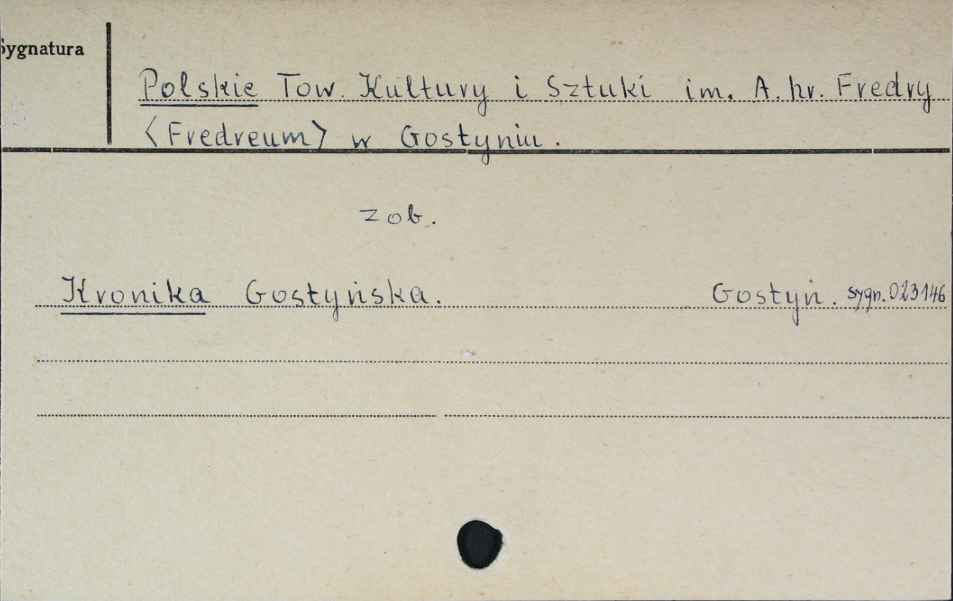 Sygnatura
Polskie Tow. Kultury i Sztuki im. A. hr. Fredry
<Fredreum> w Gostyniu.
zob.
Kronika Gostyńska. Gostyń. sygn. 023146